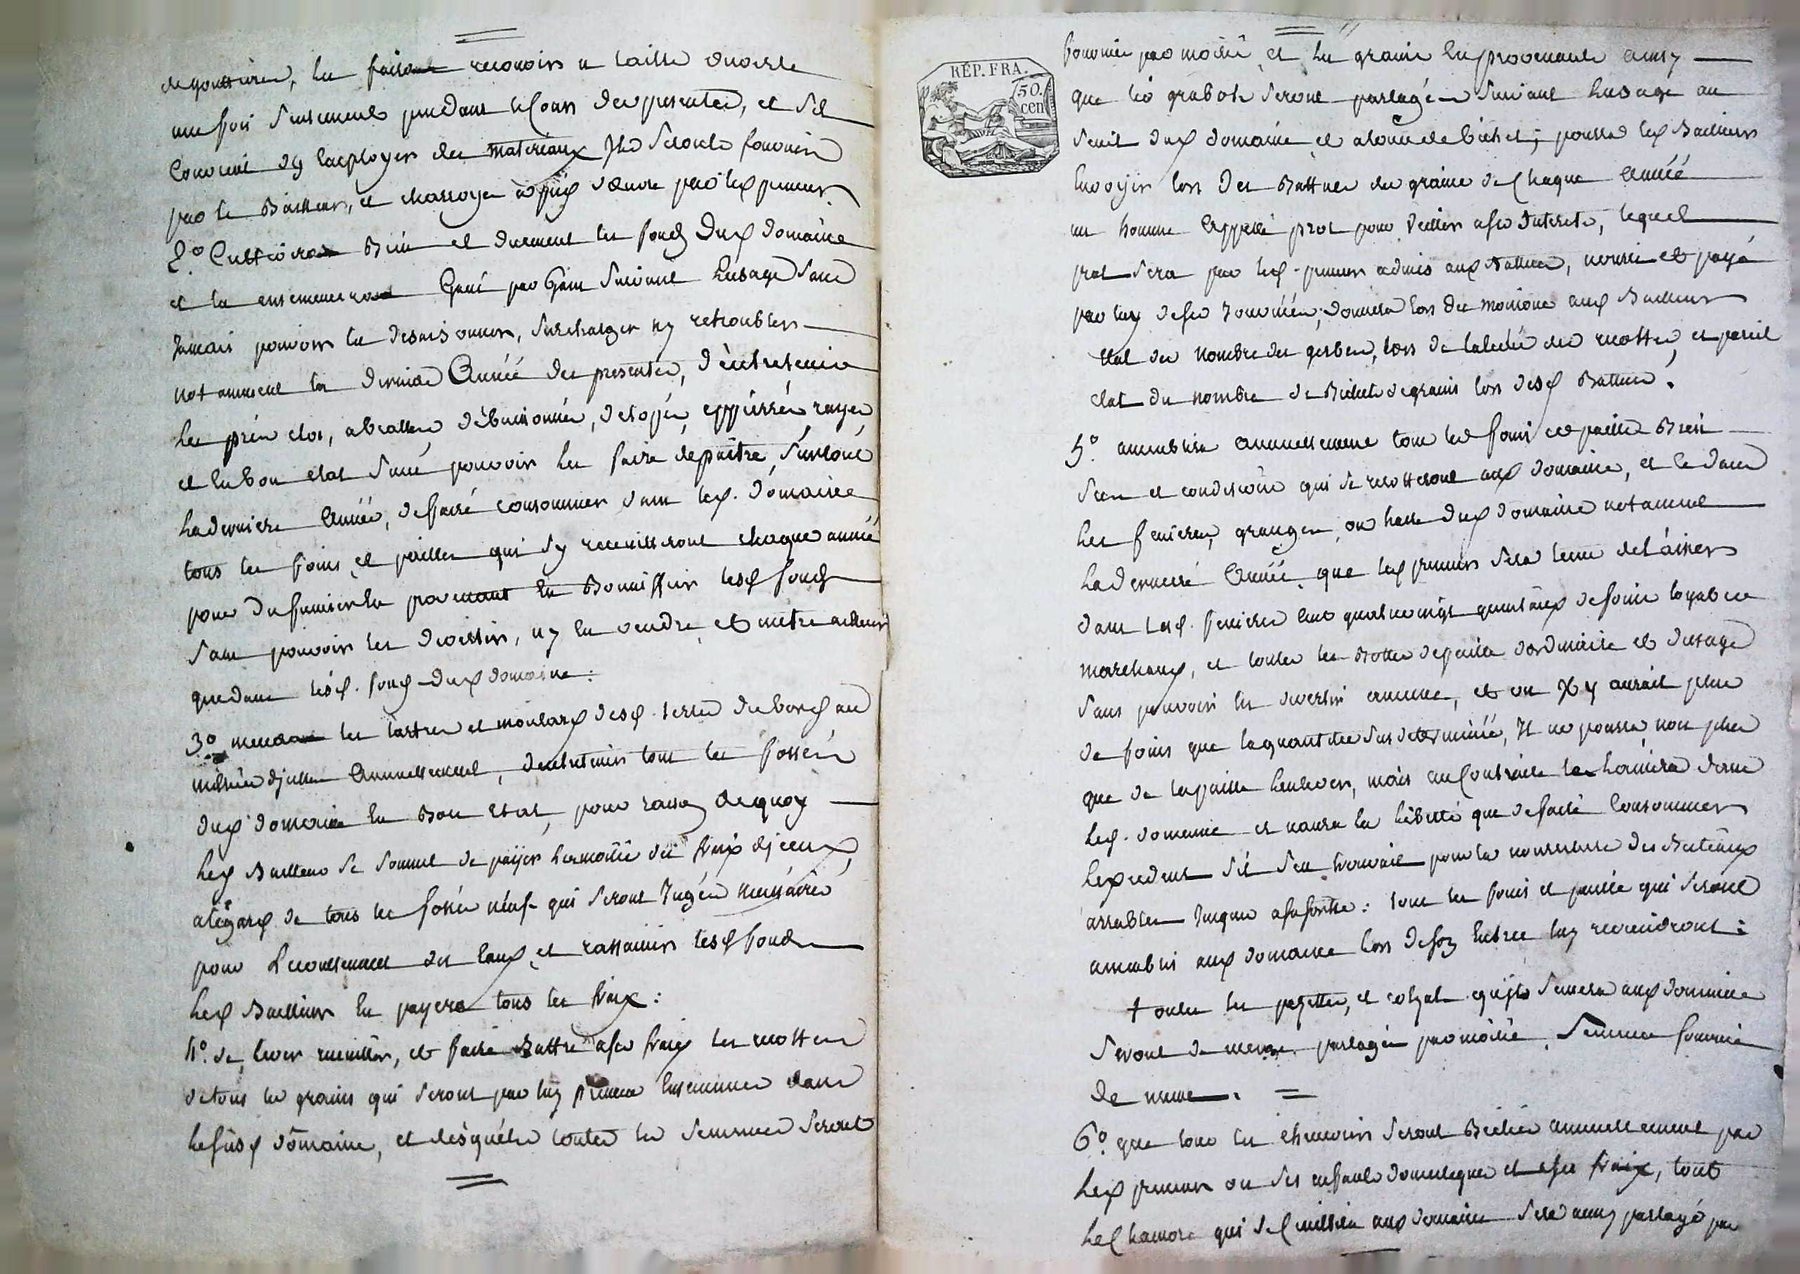 degouttieres, les faisant recouvrir a taille ouverte
une fois seulement pendant le Cours des presentes, et sil
Convient dy Employer des materiaux Ils seront fournis
par le Bailleur, et charroyés a pied d'œuvre par led preneur
2.° Cultivera Bien et duement les fonds dud domaine
et les ensemencera Gain par Gain suivant Lusage sans
Jamais pouvoir les desaisonner, surcharger ny retroubler
notamment la derniere Année des presentes, d'entretenir
les prés clos, buissonnés, etoppés, rayés,
et En bon etat sans pouvoir les faire depaître, surtout
La derniere Année, de faire consommer dans led. domaine
tous les foins et pailles qui sy receuilleront chaque année
pour du fumier En provenant En Bonniffier lesd fonds
sans pouvoir les divertir, ny En vendre et mettre ailleurs
que dans lesd. fonds dud domaine :
3.° les et desd. terres
annuellement, d'entretenir tous les fossés
dud domaine En Bon Etat, pour raison dequoy
led Bailleur se soumet de payer La moitié des fraix diceux,
alegard de tous les fossés neufs qui seront Jugés necessaires
pour Lecoulement des Eaux et rassainir lesd fonds
led Bailleur En payera tous les fraix :
4.° de lever cueillir, et faire Battre ases fraix les recoltes
de tous les grains qui seront par luy preneur Ensemencés dans
le susd domaine, et desquelles toutes les semences seront
RÉP. FRA.
50. cen
fournies par moitié et les grains En provenants ainsy
que les grabots seront partagés suivant Lusage au
seuil dud domaine et ; pourra led Bailleur
Envoyer lors des Battues des grains de Chaque Année
un homme Appellé prot pour veiller ases Interets, lequel
prot sera par led. preneur admis aux Battues, nourri et payé
par luy de ses Journées; donnera lors des moissons aud Bailleur
Etat du nombre des gerbes, lors de la levée des recoltes, et pareil
etat du nombre de Bichets de grains lors desd Battues.
5.° annuellement tous les foins et pailles Bien
secs et conditionnés qui se recolteront aud domaine, et ce dans
les fenieres, granges, ou halle dud domaine notamment
La derniere Année que led preneur sera tenu de Laisser
dans Lesd. fenieres Cent quatrevingt quintaux de foins loyables
marchands, et toutes les Bottes de paille d'ordinaire et d'usage
sans pouvoir les divertir aucune, et ou Il y aurait plus
de foins que la quantitée susdeterminée, Il ne pourra non plus
que de la paille Enlever, mais au Contraire les Laissera dans
led. domaine et n'aura la Liberté que de faire Consommer
Lexcedent sil sen trouvait pour la nourriture des Bestiaux
arrables Jusques a sa sortie : tous les foins et pailles qui seront
aud domaine lors de son Entrée luy reviendront :
toutes les pezettes, et colzat quils semera aud domaine
seront de meme partagés par moitié, semence fournie
de meme. =
6.° que tous les seront annuellement par
Led preneur ou ses enfants domestiques et ases fraix, tout
Le Chanvre qui se Cueillira aud domaine sera aussy partagé par